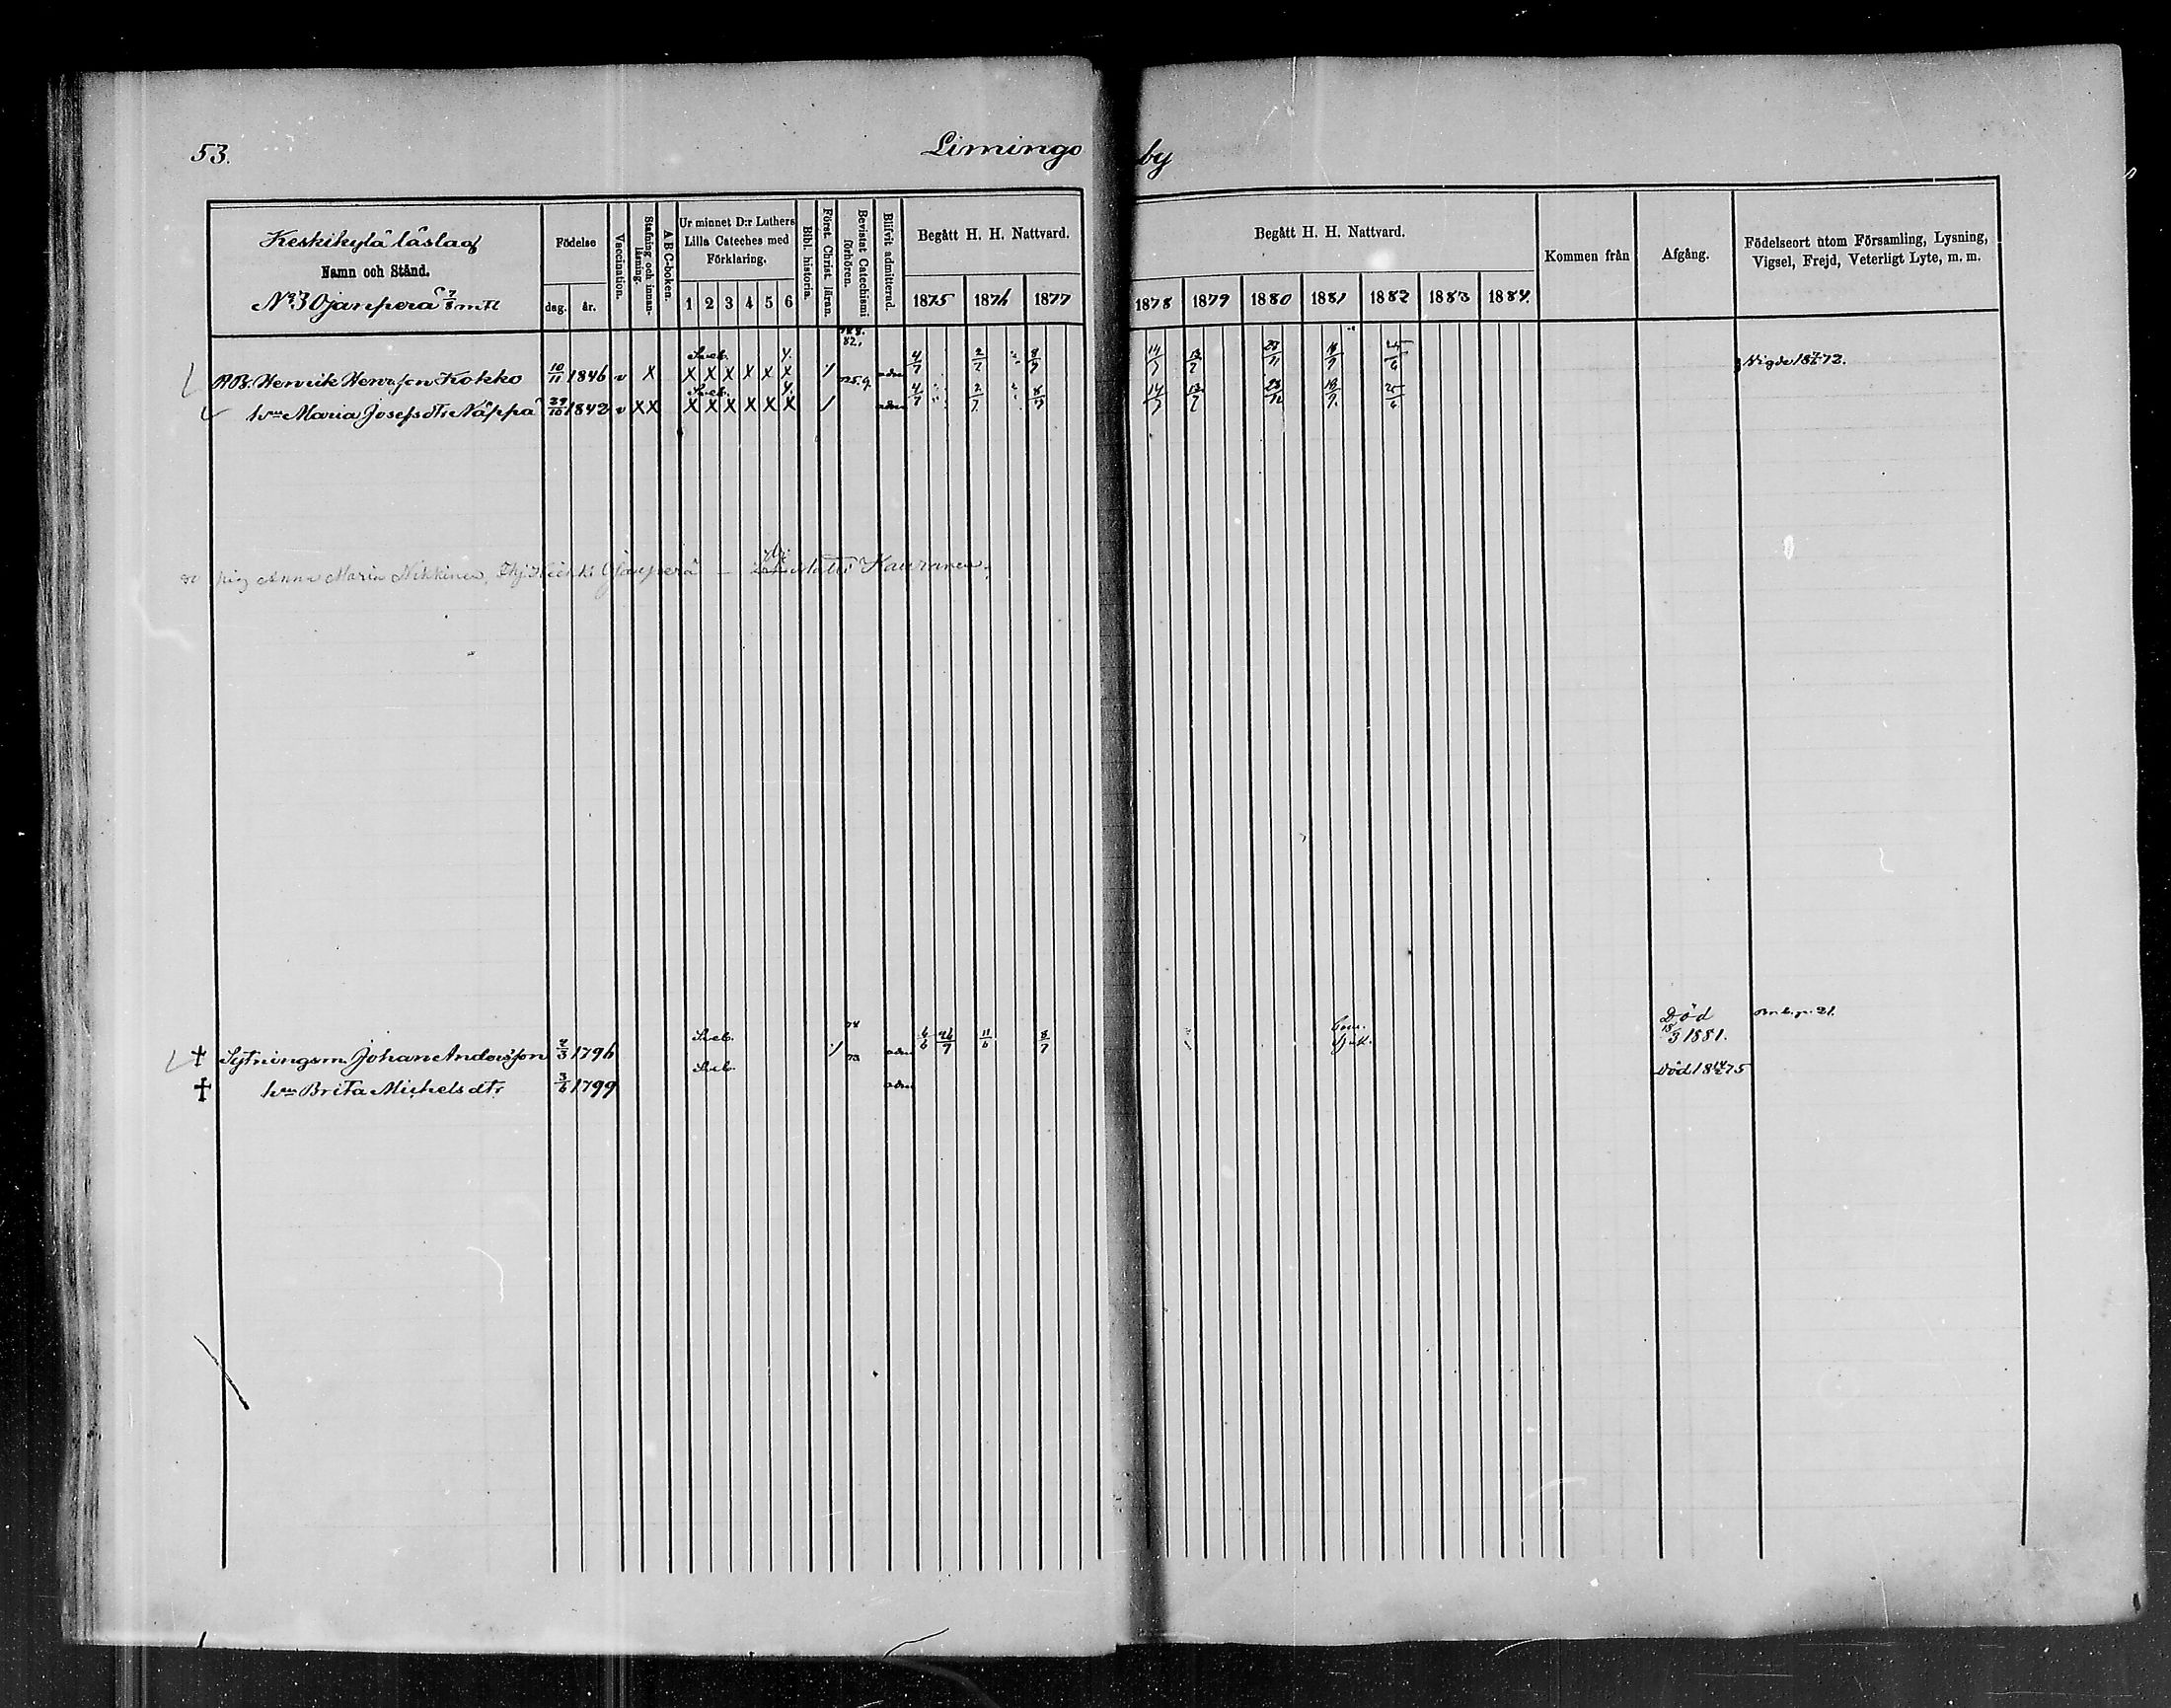 53.
Limingo by
Keskikylä läslag
Namn och Stånd.
No 3 Ojanperä 7/8 mtl
Födelse
dag. år.
Vaccination.
Stafning och innanläsning.
A B C-boken.
Ur minnet D:r Luthers Lilla Cateches med Förklaring.
1 2 3 4 5 6
Bibl. historia.
Först. Christ. läran.
Bevistat Catechismi förhören.
Blifvit admitterad.
Begått H. H. Nattvard.
1875 1876 1877
Begått H. H. Nattvard.
1878 1879 1880 1881 1882 1883 1884.
Kommen från
Afgång.
Födelseort utom Församling, Lysning, Vigsel, Frejd, Veterligt Lyte, m. m.
82.
Henrik Henrsson Kokko 10/11 1846 v X X X X X X X / adm 4/7 2/7 8/7 14/7 Vigde 72.
hu Maria Josefsdtr Näppä 29/10 1842 v X X X X X X X X / adm 4/7 2/7 14/7
pig Anna Maria Nikkinen, Heikki Ojanperä — Matti Kauranen.
† Sytningsm. Johan Andersson 2/3 1796 / adm 6/6 26/9 11/6 8/7 Död 18/3 1881.
† hu Brita Michelsdtr 3/6 1799 adm Död 75